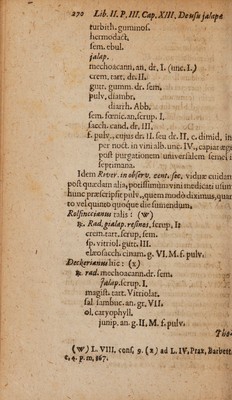 270 Lib. II. P. III. Cap. XIII. De usu jalapæ
turbith. gummos.
hermodact,
sem. ebul.
jalap.
mechoacann, an. dr. I. (unc. I.)
crem. tart. dr. II.
gutt. gumm. dr. sem,
pulv, diambr.
diarrh. Abb.
sem. fœnic. an, scrup. I.
sacch. cand. dr. III,
f. pulv., cujus dr. II. seu dr. II. c. dimid, in
per noct. in vini alb. unc. IV., capiat ægra
post purgationem universalem semel i
septimana.
Idem River. in observ. cent. sec, viduæ cuidam
post quædam alia, potissimum vini medicati usum
hunc præscripsit pulv., quem modò diximus, quar
to vel quinto quoque die sumendum,
Rolfincianus talis: (w)
℞. Rad. gialap. resinos, scrup. II
crem. tart. scrup, sem.
sp. vitriol. gutt. III.
elæosacch. cinam. g. VI. M. f. pulv.
Deckerianus hic: (x)
℞. rad. mechoacann. dr. sem.
jalap. scrup. I.
magist. tart. Vitriolat.
sal. sambuc. an. gr, VII.
ol. caryophyll.
junip. an. g. II, M. f. pulv.
The-
(w) L. VIII. cons, 9. (x) ad L. IV, Prax, Barbett
c. 4. p. m, 867.